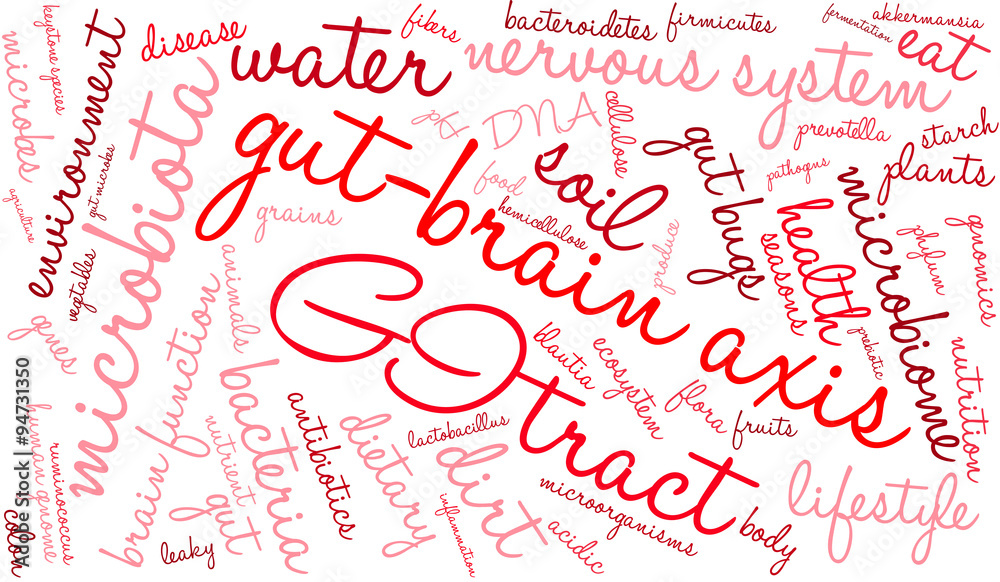 keystone species
microbs
environment
disease
fibers
bacteroidetes
firmicutes
fermentation
akkermansia
eat
water
nervous system
microbiota
gut microbes
agriculture
vegetables
gut-brain axis
pH
DNA
cellulose
prevotella
starch
plants
pathogns
food
soil
gut bugs
grains
hemicellulose
produce
health
seasons
microbiome
phylum
genomics
prebiotic
nutrition
genes
animals
brain function
GI tract
blautia
ecosystem
flora
fruits
human genome
ruminococcus
colon
bacteria
nutrient
gut
leaky
antibiotics
dietary
lactobacillus
dirt
inflammation
acidic
microorganisms
body
lifestyle
Adobe Stock | #94731350
Adobe Stock